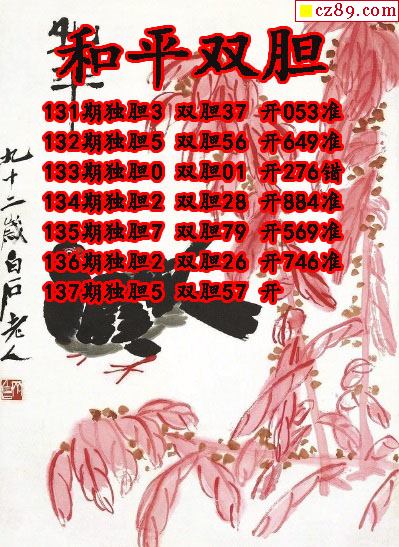 cz89.com
和平双胆
131期独胆3 双胆37 开053准
132期独胆5 双胆56 开649准
133期独胆0 双胆01 开276错
134期独胆2 双胆28 开884准
135期独胆7 双胆79 开569准
136期独胆2 双胆26 开746准
137期独胆5 双胆57 开
九十二岁白石老人